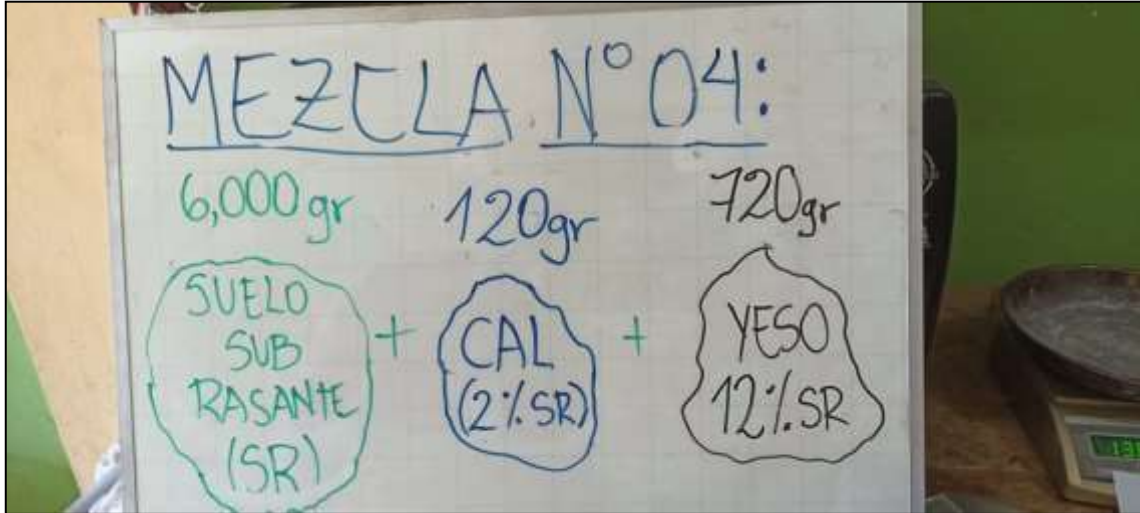 MEZCLA N° 04:
6,000 gr 120gr 720gr
SUELO
SUB
RASANTE
(SR)
+
CAL
(2%SR)
+
YESO
12%SR